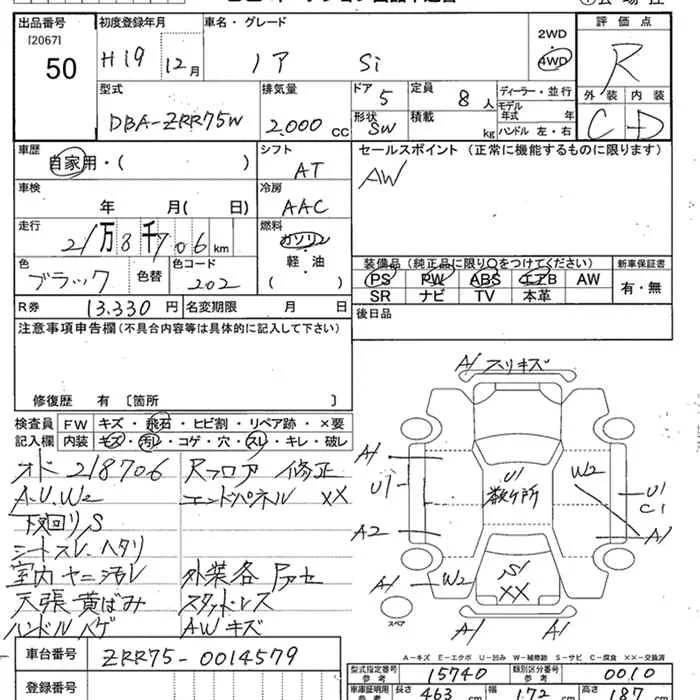 出品番号 初度登録年月 車名・グレード 2WD 評価点
[2067] 50 H19 12月 ノア Si 4WD R
型式 排気量 ドア 5 定員 8人 ディーラー・並行 外装 内装
DBA-ZRR75W 2.000cc 形状 SW 積載 kg モデル年式 年 C D
ハンドル 左・右
車歴 自家用・( ) シフト AT セールスポイント(正常に機能するものに限ります)
車検 年 月( 日) 冷房 AAC AW
走行 21万8千706km 燃料 ガソリン
色 ブラック 色替 色コード 202 軽・油 ( ) 装備品(純正品に限り○をつけてください) 新車保証書
PS PW ABS エアB AW 有・無
SR ナビ TV 本革
R券 13.330円 名変期限 月 日 後日品
注意事項申告欄(不具合内容等は具体的に記入して下さい)
修復歴 有 〔箇所 〕
検査員 FW キズ・飛石・ヒビ割・リペア跡・×要
記入欄 内装 キズ・汚レ・コゲ・穴・スレ・キレ・破レ
オド 218706 Rフロア 修正
A.U.W2 エンドパネル XX
下廻り S
シートスレ.ヘタリ
室内 ヤニ汚レ 外装各 色アセ
天張 黄ばみ スタッドレス
ハンドル ハゲ AW キズ
A1 スリキズ
A1
U1
U1 数ヶ所
W2
U1
C1
A2
A1
A1
W2
S1
XX
スペア
A1
A1
A-キズ E-エクボ U-凹み W-補修跡 S-サビ C-腐食 XX-交換済
車台番号 ZRR75-0014579
登録番号
型式指定番号 参考 15740 類別区分番号 参考 0010
車庫証明用 参考 長さ 463 cm 幅 172 cm 高さ 187 cm